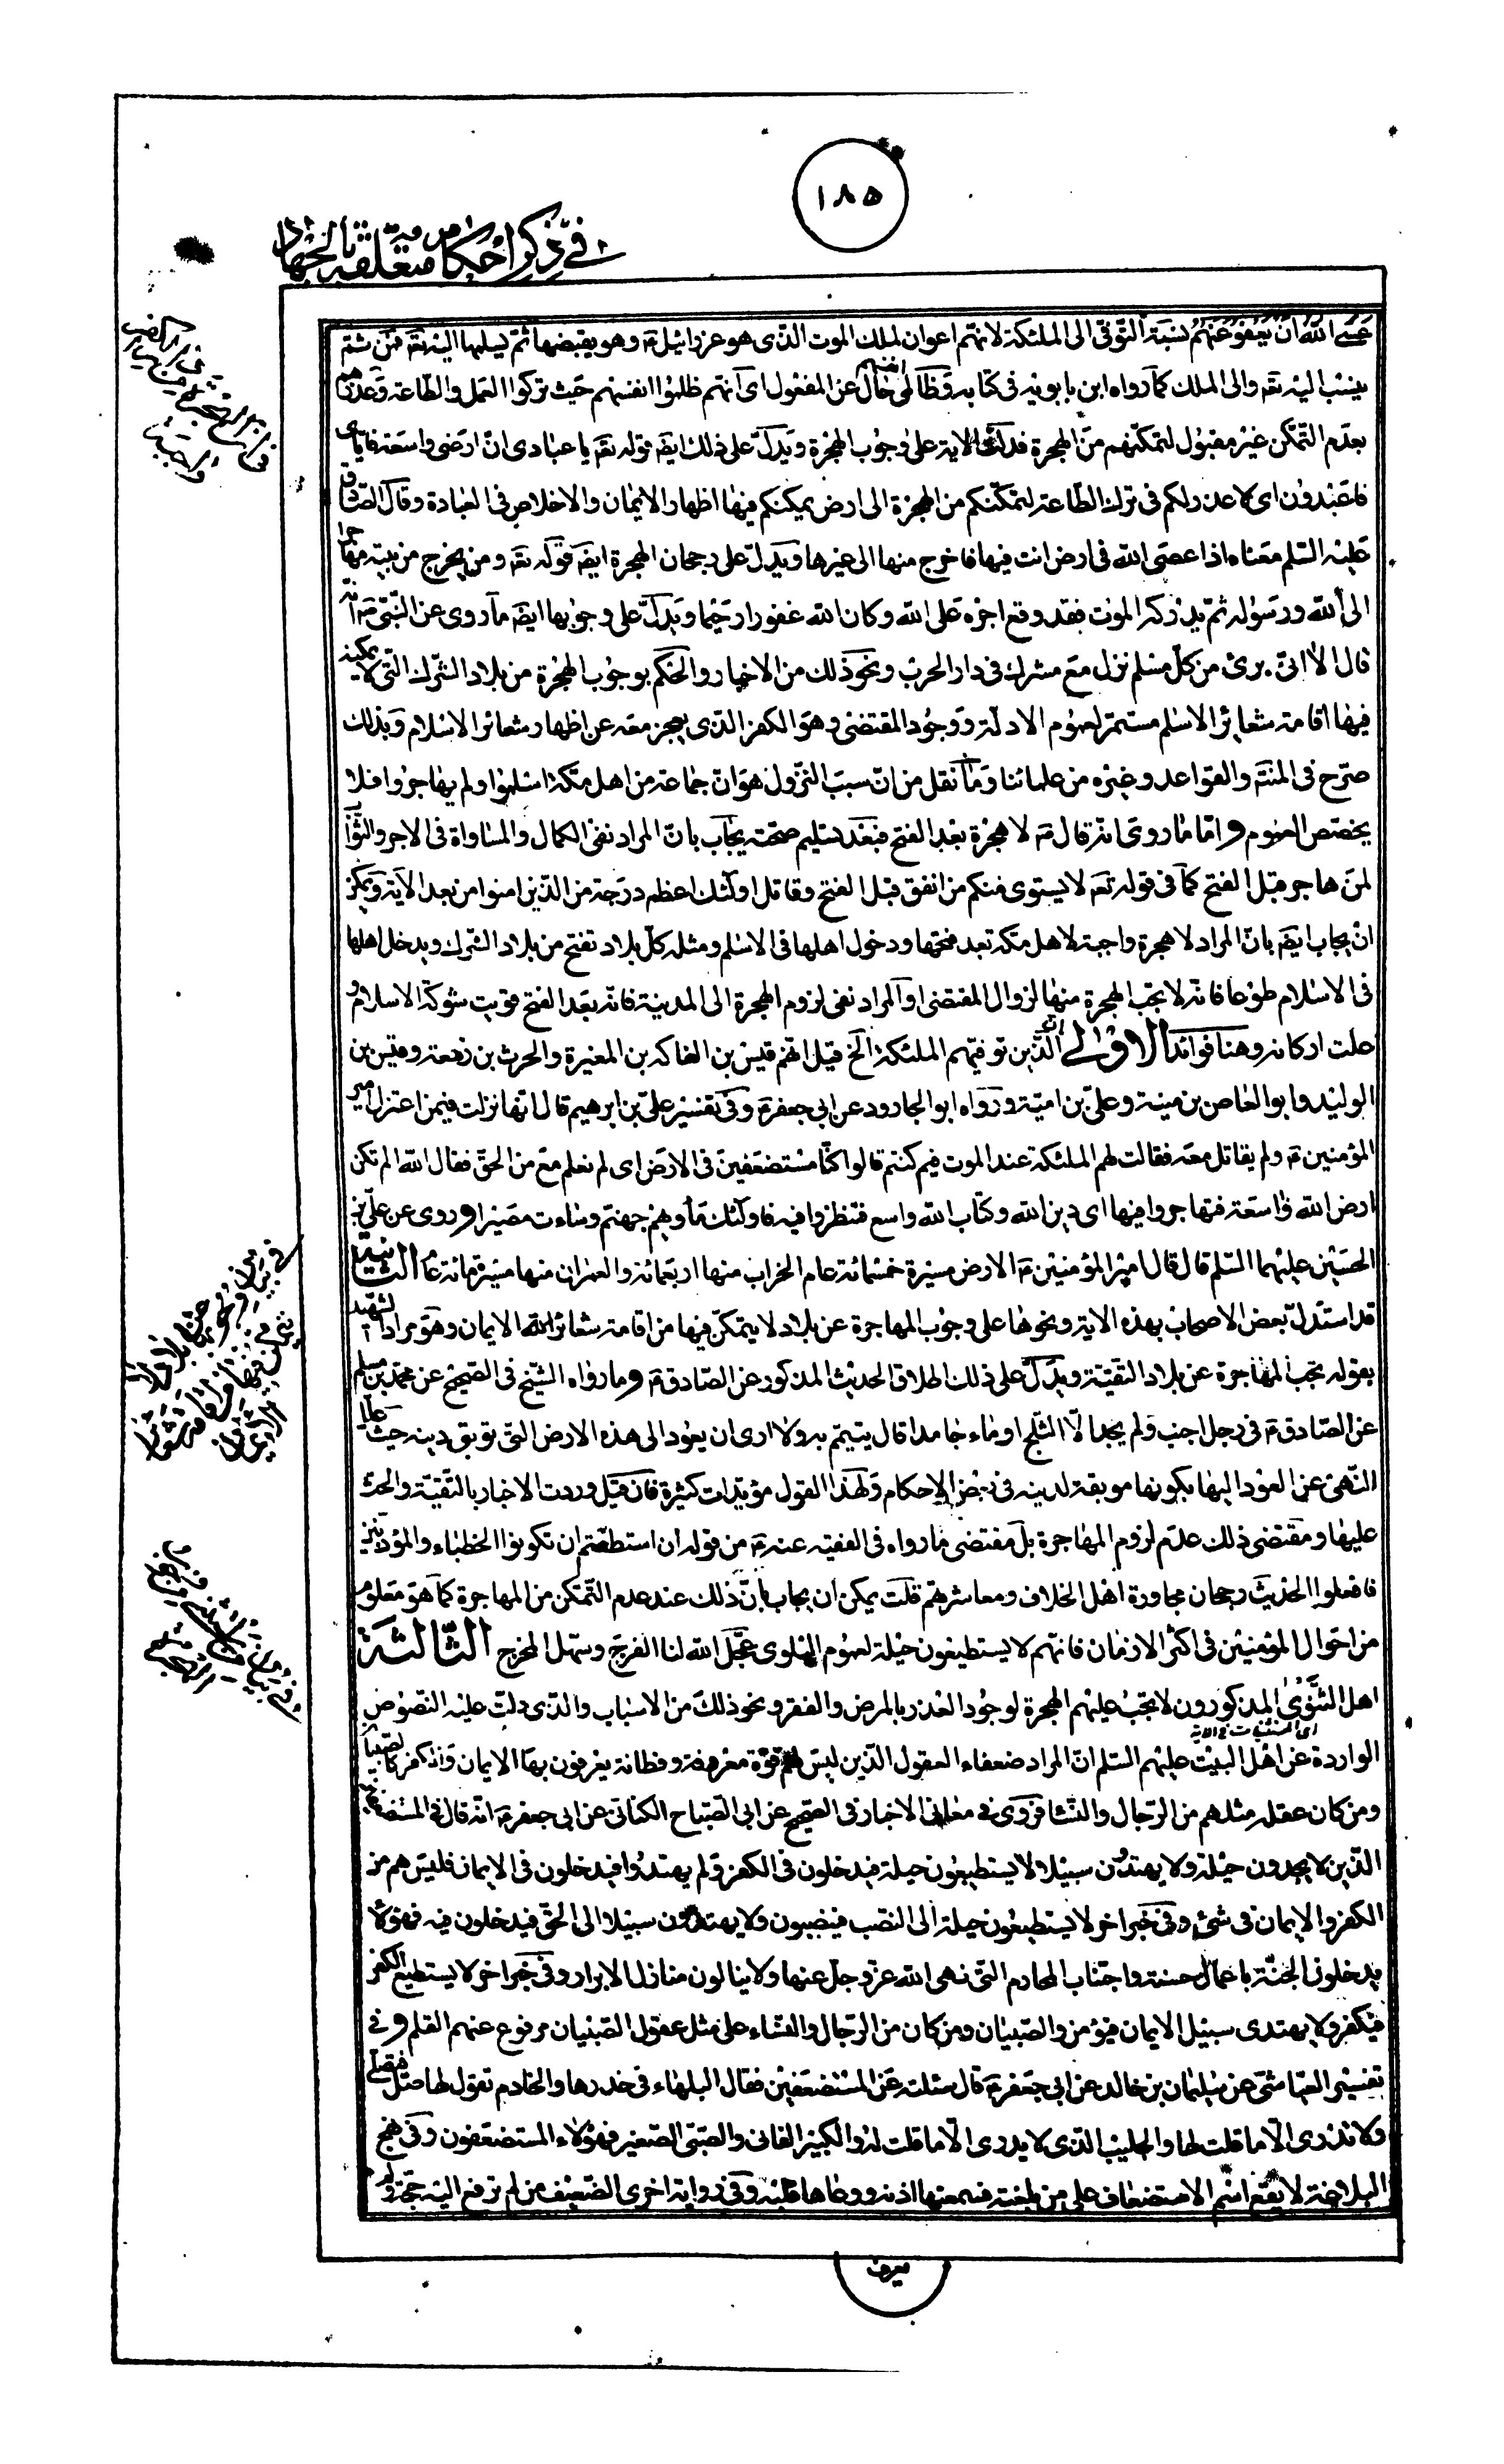 ١٨٥
في ذكر احكام متعلقة بالجهاد
عسى الله ان يعفو عنهم نسبة التوفي الى الملئكة لانهم اعوان لملك الموت الذى هو عزرائيل ع وهو يقبضها ثم يسلمها اليه تعه فمن ثم
ينسب اليه تعه والى الملك كما رواه ابن بابويه في كتابه وظالمى انفسهم حال عن المفعول اى انهم ظلموا انفسهم حيث تركوا العمل والطاعة وعذرهم
بعدم التمكن غير مقبول لتمكنهم من الهجرة فدلت الاية على وجوب الهجرة ويدل على ذلك ايضه قوله تعه يا عبادى ان ارضى واسعة فاياى
فاعبدون اى لا عذر لكم في ترك الطاعة لتمكنكم من الهجرة الى ارض يمكنكم فيها اظهار الايمان والاخلاص في العبادة وقال الصادق
عليه السلم معناه اذا عصى الله في ارض انت فيها فاخرج منها الى غيرها ويدل على رجحان الهجرة ايضه قوله تعه ومن يخرج من بيته مهاجرا
الى الله ورسوله ثم يدركه الموت فقد وقع اجره على الله وكان الله غفورا رحيما ويدل على وجوبها ايضه ما روى عن النبى ص انه
قال الا انى برئ من كل مسلم نزل مع مشرك في دار الحرب ونحو ذلك من الاخبار والحكم بوجوب الهجرة من بلاد الشرك التى لا يمكنه
فيها اقامة شعائر الاسلم مستمر لعموم الادلة ووجود المقتضى وهو الكفر الذى يعجز معه عن اظهار شعائر الاسلام وبذلك
صرح في المنته والقواعد وغيره من علمائنا وما نقل من ان سبب النزول هو ان جماعة من اهل مكة اسلموا ولم يهاجروا فلا
يخصص العموم واما ما روى انه قال ص لا هجرة بعد الفتح فبعد تسليم صحته يجاب بان المراد نفى الكمال والمساواة في الاجر والثواب
لمن هاجر قبل الفتح كما في قوله تعه لا يستوى منكم من انفق قبل الفتح وقاتل اولئك اعظم درجة من الذين امنوا من بعد الاية ويمكن
ان يجاب ايضه بان المراد لا هجرة واجبة لاهل مكة بعد فتحها ودخول اهلها في الاسلم ومثله كل بلاد تفتح من بلاد الشرك ويدخل اهلها
في الاسلام طوعا فانه لا يجب الهجرة منها لزوال المقتضى او المراد نفى لزوم الهجرة الى المدينة فانه بعد الفتح قويت شوكة الاسلام و
علت اركانه وهنا فوائد الاولى ان الذين توفيهم الملئكة الخ قيل انهم قيس بن الفاكه بن المغيرة والحرث بن زمعة وقيس بن
الوليد وابو العاص بن منبه وعلى بن امية ورواه ابو الجارود عن ابى جعفر ع وفى تفسير على بن ابرهيم قال انها نزلت فيمن اعتزل امير
المؤمنين ع ولم يقاتل معه فقالت لهم الملئكة عند الموت فيم كنتم قالوا كنا مستضعفين في الارض اى لم نعلم مع من الحق فقال الله الم تكن
ارض الله واسعة فتهاجروا فيها اى دين الله وكتاب الله واسع فتنظروا فيه فاولئك ماويهم جهنم وساءت مصيرا وروى عن على بن
الحسين عليهما السلم قال قال امير المؤمنين ع الارض مسيرة خمسمائة عام الخراب منها اربعمائة والعمران منها مسيرة مائة عام الثانية
قد استدل بعض الاصحاب بهذه الاية ونحوها على وجوب المهاجرة عن بلاد لا يتمكن فيها من اقامة شعائر الايمان وهو مراد الشهيد
بقوله تجب المهاجرة عن بلاد التقية ويدل على ذلك اطلاق الحديث المذكور عن الصادق ع وما رواه الشيخ في الصحيح عن محمد بن مسلم
عن الصادق ع في رجل اجنب ولم يجد الا الثلج او ماء جامدا قال يتيمم به ولا ارى ان يعود الى هذه الارض التى توبق دينه حيث علل
النهى عن العود اليها بكونها موبقة لدينه في بعض الاحكام ولهذا القول مؤيدات كثيرة فان قيل وردت الاخبار بالتقية والحث
عليها ومقتضى ذلك عدم لزوم المهاجرة بل مقتضى ما رواه في الفقيه عنه ع من قوله ان استطعتم ان تكونوا الخطباء والمؤذنين
فافعلوا الحديث رجحان مجاورة اهل الخلاف ومعاشرتهم قلت يمكن ان يجاب بان ذلك عند عدم التمكن من المهاجرة كما هو معلوم
من احوال المؤمنين في اكثر الازمان فانهم لا يستطيعون حيلة لعموم البلوى عجل الله لنا الفرج وسهل المخرج الثالثة
اهل الثنوى المذكورون لا يجب عليهم الهجرة لوجود العذر بالمرض والفقر ونحو ذلك من الاسباب والذى دلت عليه النصوص
اى المستثنيات في الاية
الواردة عن اهل البيت عليهم السلم ان المراد ضعفاء العقول الذين ليس لهم قوة معرفة وفطانة يعرفون بها الايمان والكفر كالصبيان
ومن كان عقله مثلهم من الرجال والنساء فروى في معانى الاخبار في الصحيح عن ابى الصباح الكنانى عن ابى جعفر ع انه قال في المستضعفين
الذين لا يجدون حيلة ولا يهتدون سبيلا لا يستطيعون حيلة فيدخلون في الكفر ولم يهتدوا فيدخلون في الايمان فليس هم من
الكفر والايمان في شئ وفى خبر اخر لا يستطيعون حيلة الى النصب فينصبون ولا يهتدون سبيلا الى الحق فيدخلون فيه فهؤلاء
يدخلون الجنة باعمال حسنة واجتناب المحارم التى نهى الله عز وجل عنها ولا ينالون منازل الابرار وفى خبر اخر لا يستطيع الكفر
فيكفر ولا يهتدى سبيل الايمان فيؤمن والصبيان ومن كان من الرجال والنساء على مثل عقول الصبيان مرفوع عنهم القلم وفى
تفسير العياشى عن سليمان بن خالد عن ابى جعفر ع قال سئلته عن المستضعفين فقال البلهاء في خدرها والخادم تقول لها صلى فتصلى
ولا تدرى الا ما قلت لها والجليب الذى لا يدرى الا ما قلت له والكبير الفانى والصبى الصغير فهؤلاء المستضعفون وفى نهج
البلاغة لا يقع اسم الاستضعاف على من بلغته الحجة فسمعتها اذنه ووعاها قلبه وفى رواية اخرى الضعيف من لم ترفع اليه حجة ولم
يعرف